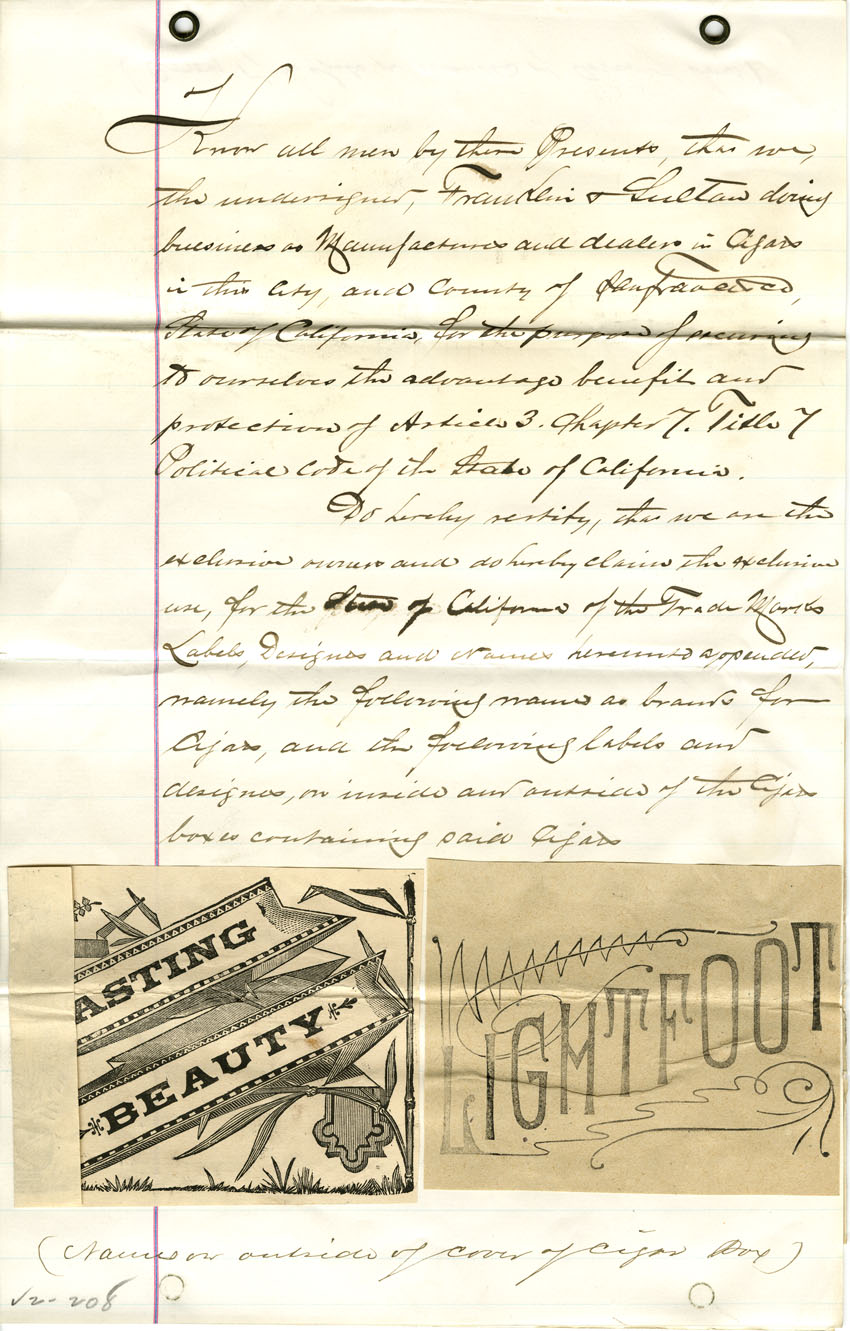 Know all men by these Presents, that we,
the undersigned, Franklin & Sultan doing
buesiness as Manufactures and dealers in Cigars
in this City, and County of San Francisco,
State of California, for the purpose of securing
to ourselves the advantage benefit and
protection of Article 3. Chapter 7. Title 7
Political Code of the State of California.
Do hereby certify, that we are the
exclusive owners and do hereby claim the exclusive
use, for the State of California of the Trade Marks
Labels, Designes and Names hereunto appended,
namely the following name as brands for
Cigars, and the following labels and
designes, on inside and outside of the Cigar
boxes containing said Cigars
ASTING
BEAUTY
LIGHTFOOT
(Names on outside of cover of Cigar Box)